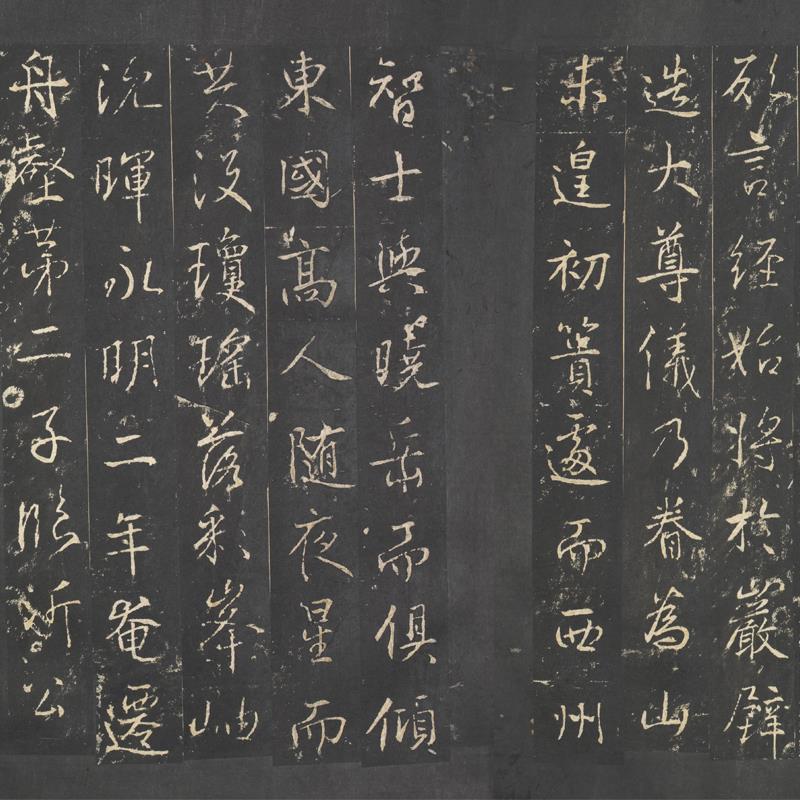 欣言經始將於巖壁
造大尊儀乃眷為山
未遑初簣遽而西州
智士與曉岳而俱傾
東國髙人随夜星而
共沒瓊瑤落彩峯岫
沈暉永明二年奄遷
舟壑第二子臨沂公